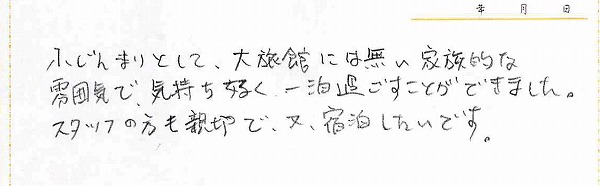 年 月 日
小じんまりとして、大旅館には無い家族的な
雰囲気で、気持ち好く、一泊過ごすことができました。
スタッフの方も親切で、又、宿泊したいです。